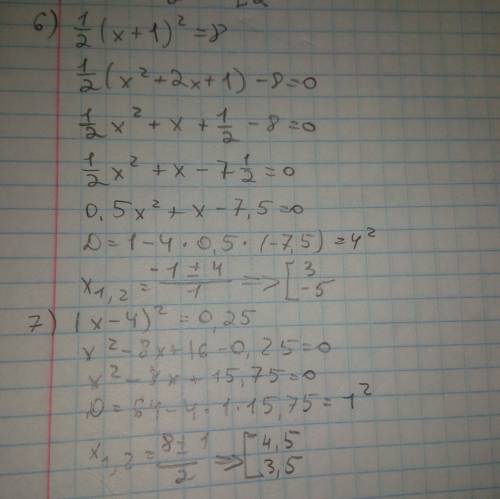 6) 1/2 (x+1)² = 8
1/2 (x² + 2x + 1) - 8 = 0
1/2 x² + x + 1/2 - 8 = 0
1/2 x² + x - 7 1/2 = 0
0,5x² + x - 7,5 = 0
D = 1 - 4 · 0,5 · (-7,5) = 4²
x1,2 = (-1 ± 4)/1 => [3 -5
7) (x-4)² = 0,25
x² - 8x + 16 - 0,25 = 0
x² - 8x + 15,75 = 0
D = 64 - 4 · 1 · 15,75 = 1²
x1,2 = (8 ± 1)/2 => [4,5 3,5